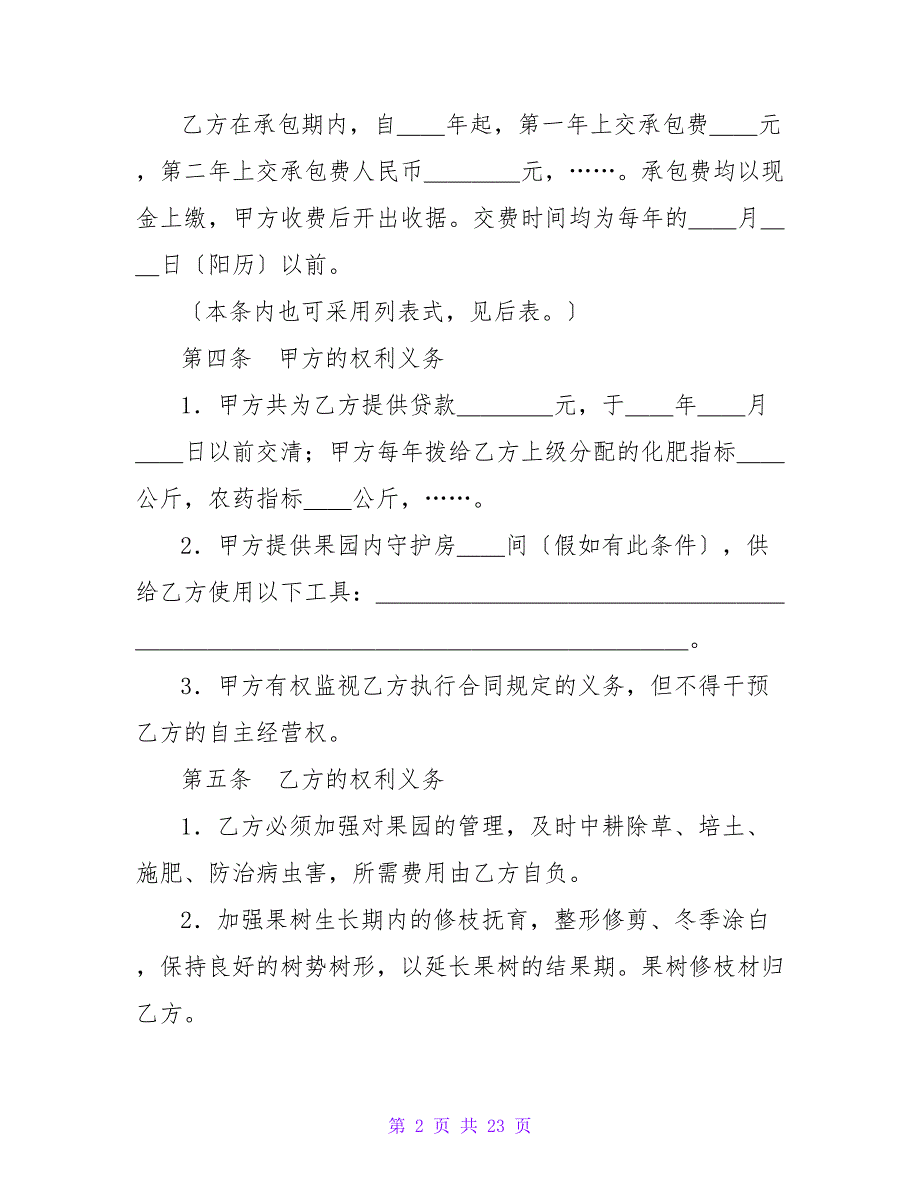 乙方在承包期内，自____年起，第一年上交承包费____元
，第二年上交承包费人民币________元，……。承包费均以现
金上缴，甲方收费后开出收据。交费时间均为每年的____月__
__日〔阳历〕以前。
〔本条内也可采用列表式，见后表。〕
第四条　甲方的权利义务
1．甲方共为乙方提供贷款________元，于____年____月
____日以前交清；甲方每年拨给乙方上级分配的化肥指标____
公斤，农药指标____公斤，……。
2．甲方提供果园内守护房____间〔假如有此条件〕，供
给乙方使用以下工具：__________________________________
______________________________________________。
3．甲方有权监视乙方执行合同规定的义务，但不得干预
乙方的自主经营权。
第五条　乙方的权利义务
1．乙方必须加强对果园的管理，及时中耕除草、培土、
施肥、防治病虫害，所需费用由乙方自负。
2．加强果树生长期内的修枝抚育，整形修剪、冬季涂白
，保持良好的树势树形，以延长果树的结果期。果树修枝材归
乙方。
第 2 页 共 23 页